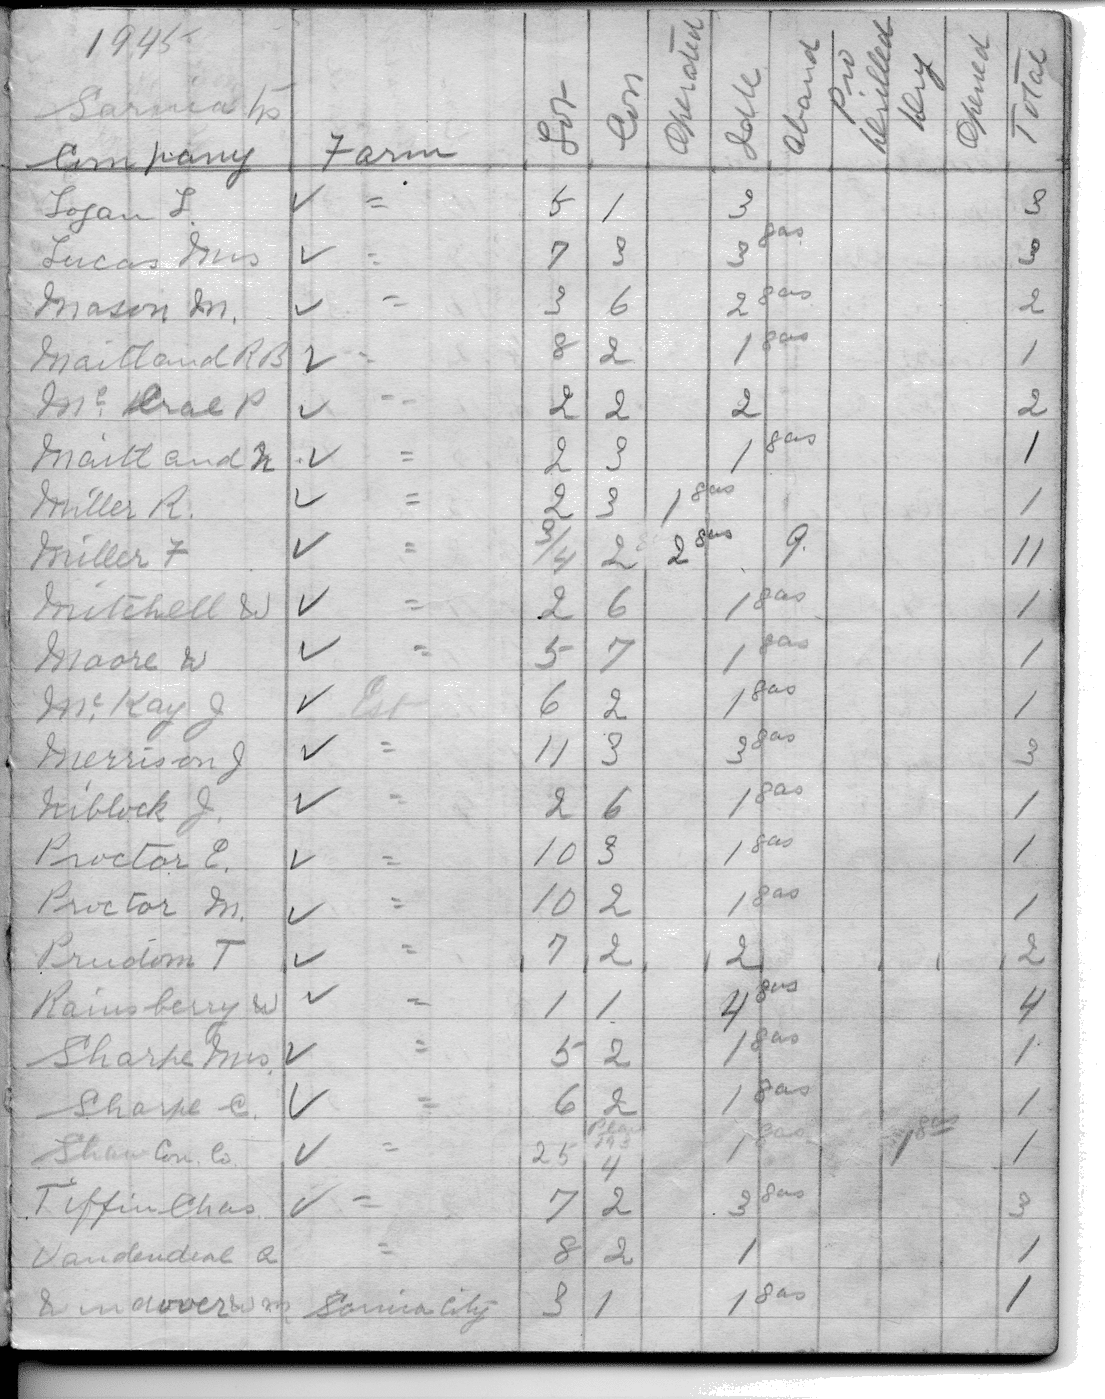 1945
Sarnia tp
Company Farm Lot Con Operated Idle Aband Pro Drilled Dry Opened Total
Logan L. ✓ = 5 1 3 3
Lucas Mrs ✓ = 7 3 3 gas 3
Mason M. ✓ = 3 6 2 gas 2
Maitland R B ✓ = 8 2 1 gas 1
Mc Crae P ✓ = 2 2 2 2
Maitland N ✓ = 2 3 1 gas 1
Miller R. ✓ = 2 3 1 gas 1
Miller F ✓ = 3/4 2 2 gas 9. 11
Mitchell W ✓ = 2 6 1 gas 1
Moore W ✓ = 5 7 1 gas 1
Mc Kay J ✓ Est 6 2 1 gas 1
Merrison J ✓ = 11 3 3 gas 3
Niblock J. ✓ = 2 6 1 gas 1
Proctor E. ✓ = 10 3 1 gas 1
Proctor M. ✓ = 10 2 1 gas 1
Prudom T ✓ = 7 2 2 2
Rainsberry W ✓ = 1 1 4 gas 4
Sharpe Mrs. ✓ = 5 2 1 gas 1
Sharpe C. ✓ = 6 2 1 gas 1
Shaw Con. Co. ✓ = 25 4 1 gas 1 gas 1
Tiffin Chas. ✓ = 7 2 3 gas 3
= 8 2 1 1
Sarnia City 3 1 1 gas 1